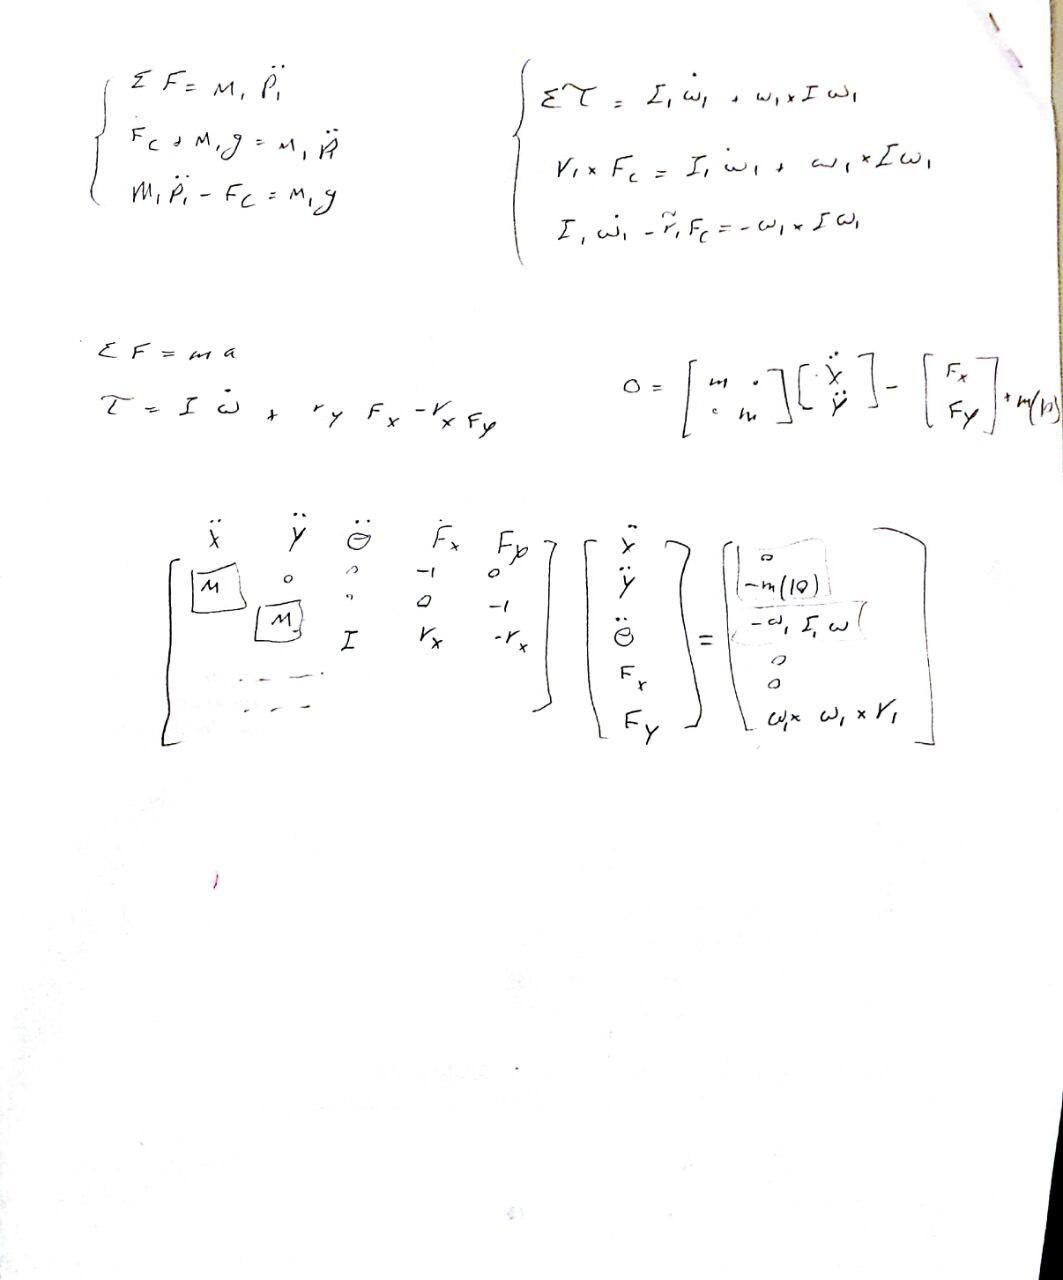 Σ F = M₁ P̈₁
F_C + M₁ g = M₁ P̈₁
M₁ P̈₁ - F_C = M₁ g
Στ = I₁ ω̇₁ + ω₁ × I ω₁
r₁ × F_C = I₁ ω̇₁ + ω₁ × I ω₁
I₁ ω̇₁ - r̃₁ F_C = - ω₁ × I ω₁
Σ F = m a
τ = I ω̇ + r_y F_x - r_x F_y
0 = [ m · ] [ Ẍ ] - [ F_x ] + m(10)
[ · m ] [ Ÿ ] [ F_y ]
Ẍ Ÿ Θ̈ F_x F_y
M 0 0 -1 0
M 0 0 -1
I r_x -r_x
Ẍ
Ÿ
Θ̈
F_x
F_y
=
0
-m(10)
-ω₁ I₁ ω
0
0
ω₁× ω₁ × r₁